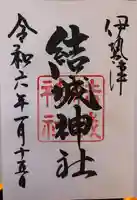 伊勢津
結城神社
結城神社
令和六年一月十五日